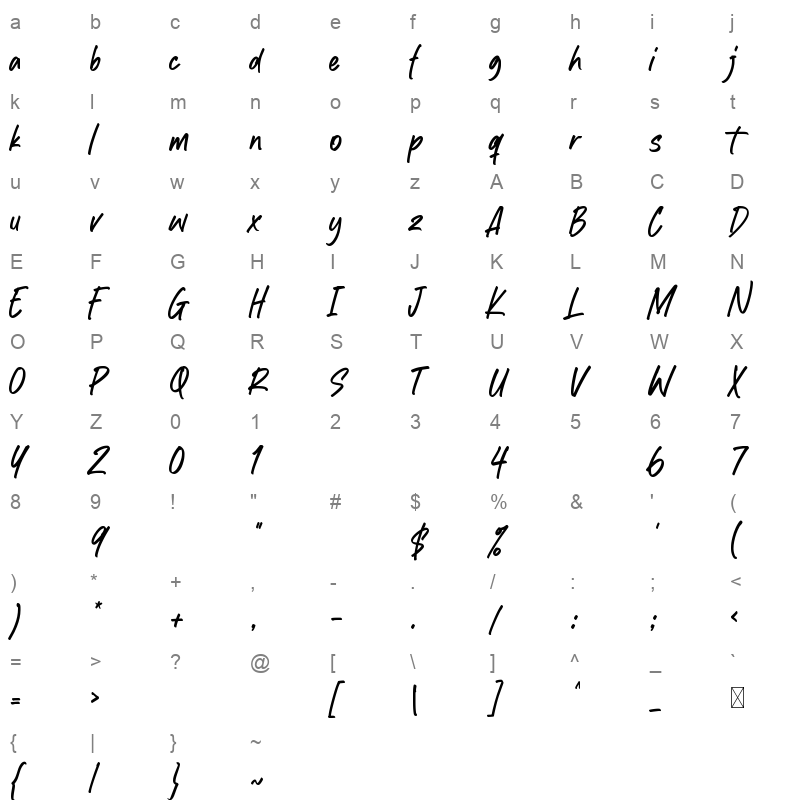 a b c d e f g h i j
a b c d e f g h i j
k l m n o p q r s t
k l m n o p q r s t
u v w x y z A B C D
u v w x y z A B C D
E F G H I J K L M N
E F G H I J K L M N
O P Q R S T U V W X
O P Q R S T U V W X
Y Z 0 1 2 3 4 5 6 7
Y Z 0 1 4 6 7
8 9 ! " # $ % & ' (
9 " $ % ' (
) * + , - . / : ; <
) * + , - . / : ; <
= > ? @ [ \ ] ^ _ `
= > [ \ ] ^ _
{ | } ~
{ | } ~